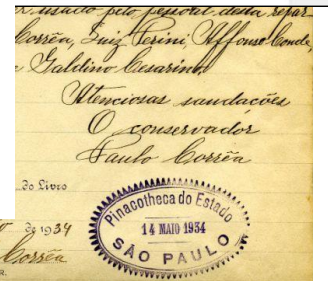 usado pelo pessoal desta repar-
Corrêa, Luiz Perini, Affonso Conde,
Galdino Cesarino.
Atenciosas saudações
O conservador
Paulo Corrêa
do Livro
Pinacotheca do Estado
de 1934
14 MAIO 1934
SÃO PAULO
Corrêa